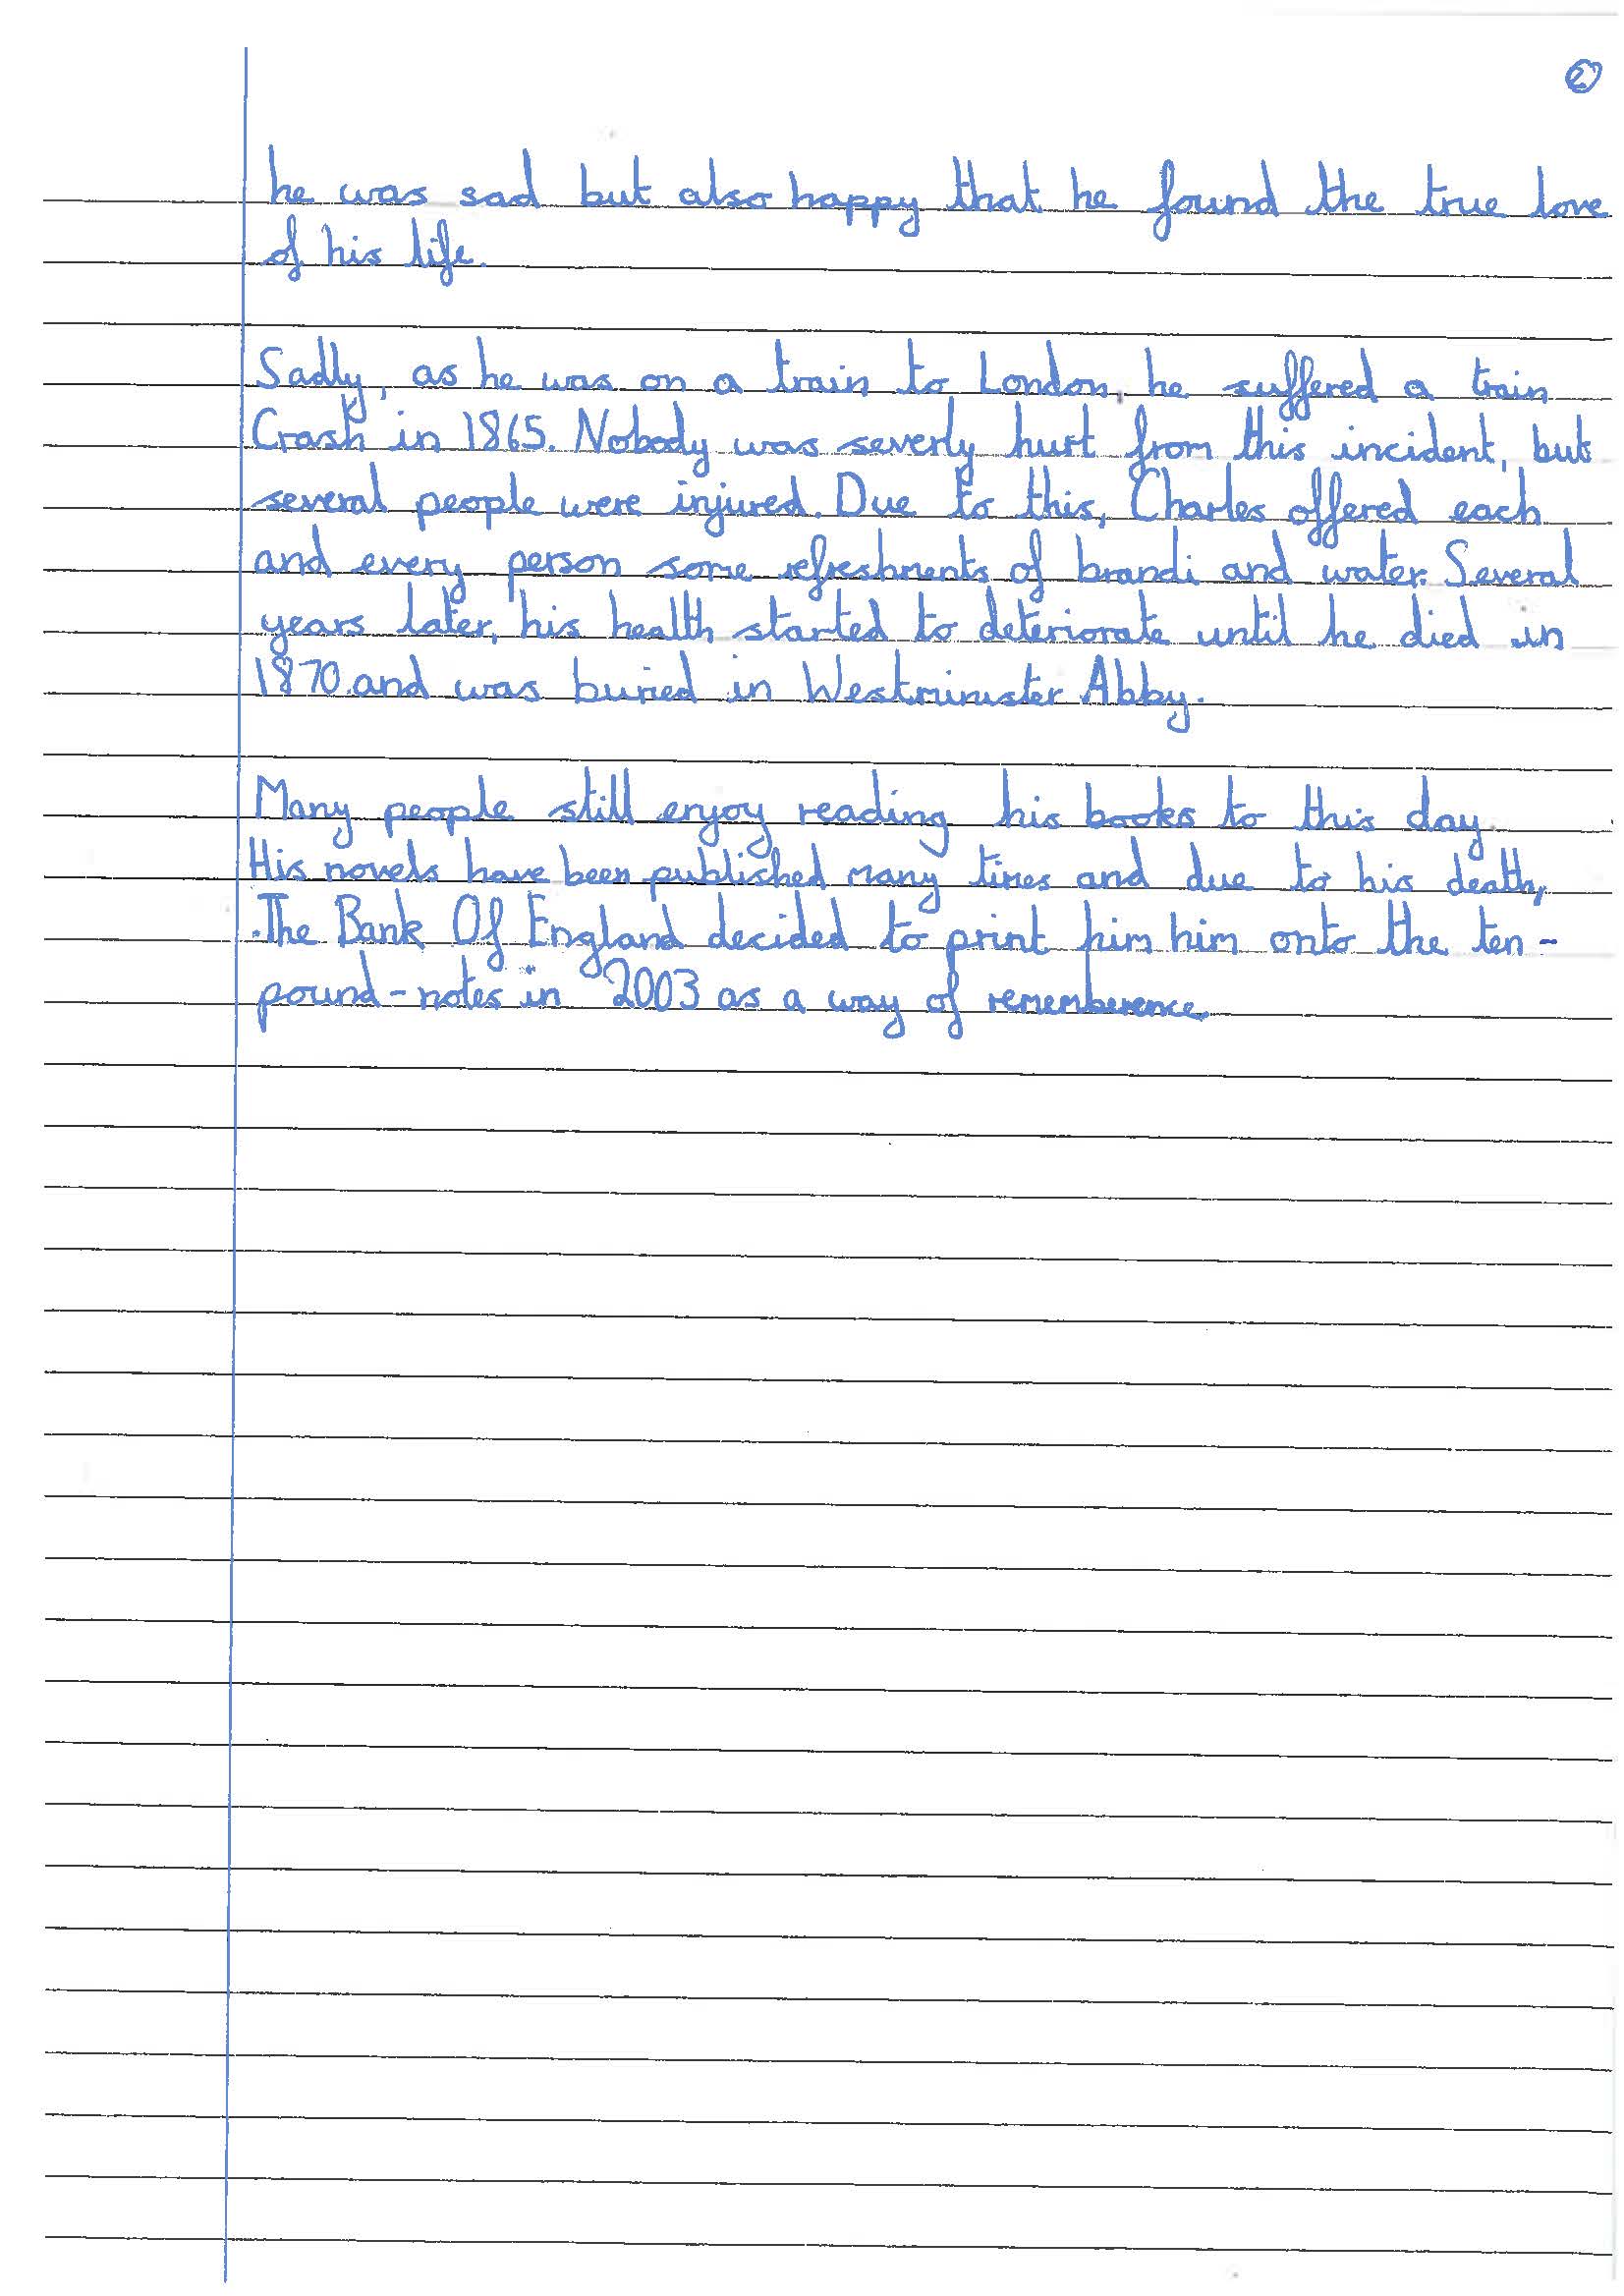 2
he was sad but also happy that he found the true love
of his life.
Sadly, as he was on a train to London, he suffered a train
Crash in 1865. Nobody was severly hurt from this incident, but
several people were injured. Due to this, Charles offered each
and every person some refreshments of brandi and water. Several
years later, his health started to deteriorate until he died in
1870.and was buried in Westminister Abby.
Many people still enjoy reading his books to this day.
His novels have been published many times and due to his death,
.The Bank Of England decided to print him him onto the ten-
pound-notes in 2003 as a way of rememberence